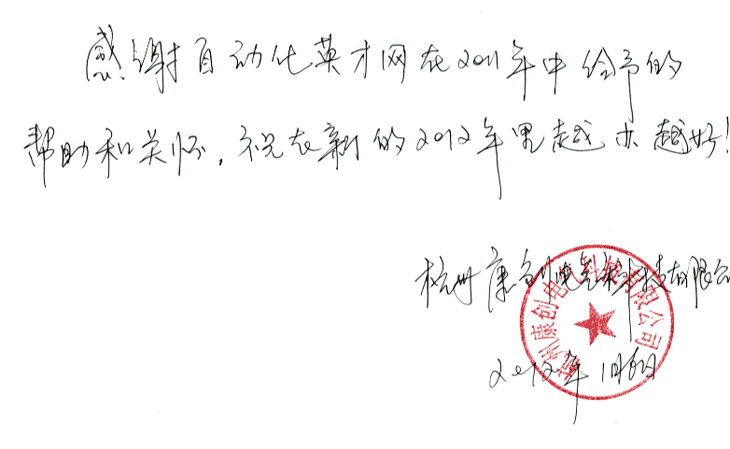 感谢自动化英才网在2011年中给予的
帮助和关怀，祝在新的2012年里越办越好！
杭州康创电气科技有限公
杭州康创电 科技有限公司
2012年1月